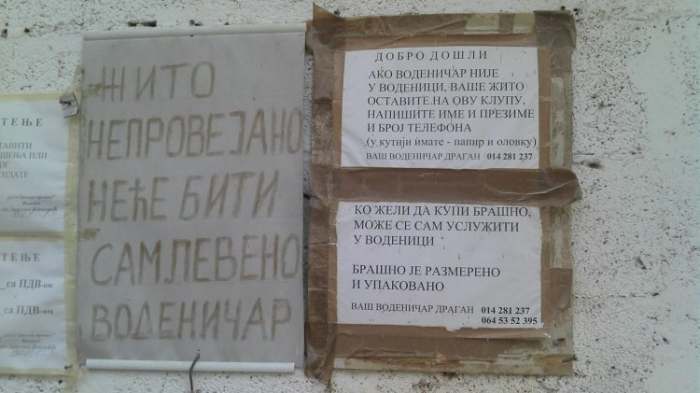 ТЕЊЕ
ЖИТО
НЕПРОВЕЈАНО
НЕЋЕ БИТИ
САМЛЕВЕНО
ВОДЕНИЧАР
ДОБРО ДОШЛИ
АКО ВОДЕНИЧАР НИЈЕ
У ВОДЕНИЦИ, ВАШЕ ЖИТО
ОСТАВИТЕ НА ОВУ КЛУПУ.
НАПИШИТЕ ИМЕ И ПРЕЗИМЕ
И БРОЈ ТЕЛЕФОНА
(у кутији имате - папир и оловку)
ВАШ ВОДЕНИЧАР ДРАГАН 014 281 237
КО ЖЕЛИ ДА КУПИ БРАШНО,
МОЖЕ СЕ САМ УСЛУЖИТИ
У ВОДЕНИЦИ
БРАШНО ЈЕ РАЗМЕРЕНО
И УПАКОВАНО
ВАШ ВОДЕНИЧАР ДРАГАН 014 281 237
064 53 52 395
ТЕЊЕ
са ПДВ-ом
са ПДВ-ом